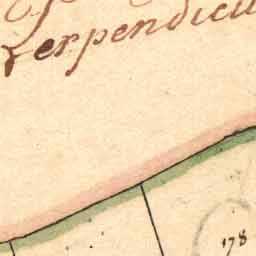 erpendicu
178